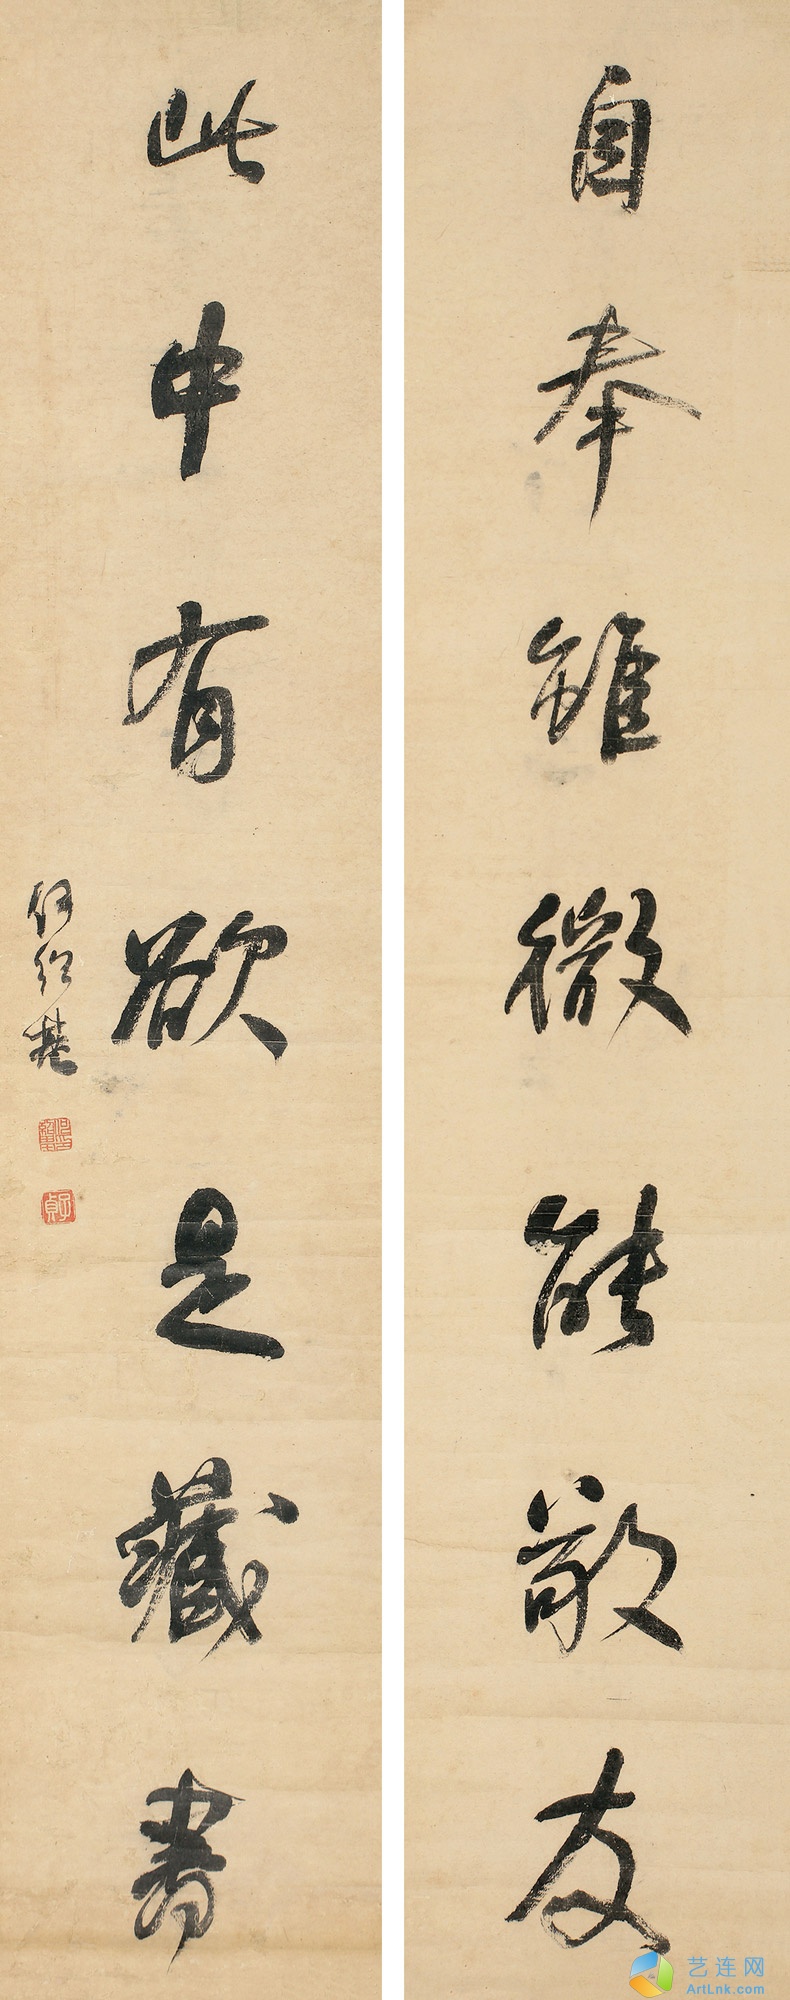 自奉雖微能敬友
此中有欲是藏書
何紹基
子貞
艺连网
ArtLnk.com